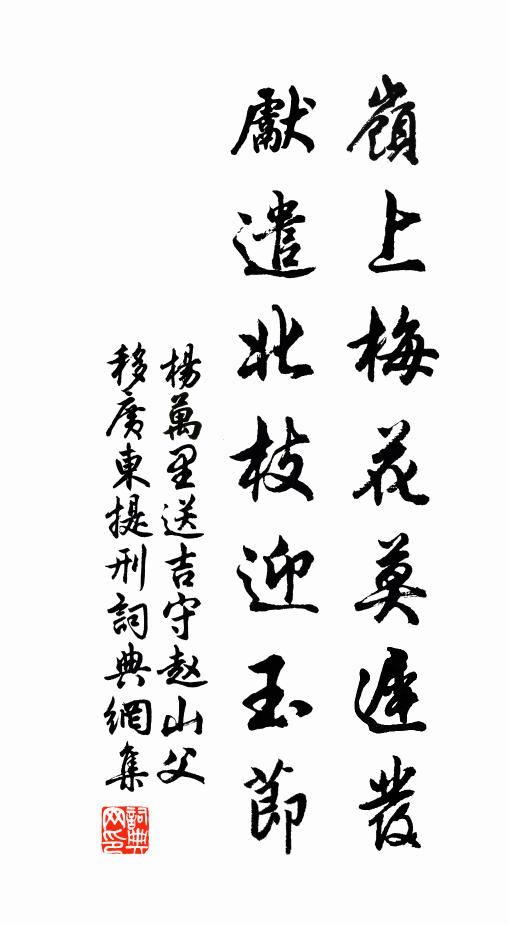 嶺上梅花莫遲發
獻遣北枝迎玉節
楊萬里送吉守赵山父
移廣東提刑詞典網集
詞典
网印